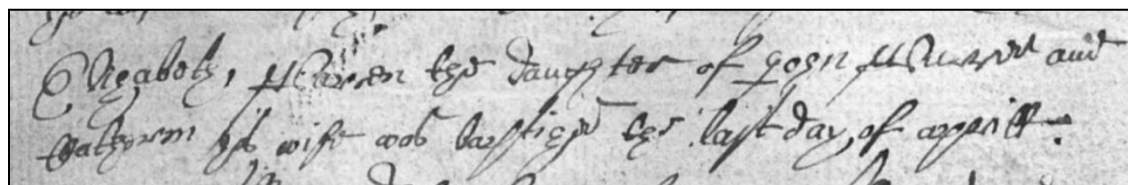 Elyzabeth, the daughter of John and
Katherin his wife was baptized the last day of aprill